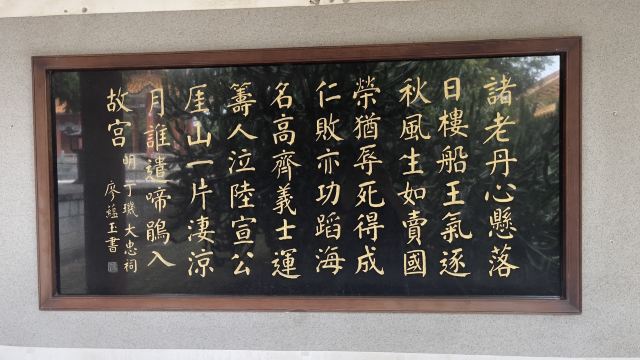 諸老丹心懸落
日樓船王氣逐
秋風生如賣國
榮猶辱死得成
仁敗亦功蹈海
名高齊義士運
籌人泣陸宣公
厓山一片淒涼
月誰遣啼鵑入
故宮
明丁璣大忠祠
廖蘊玉書